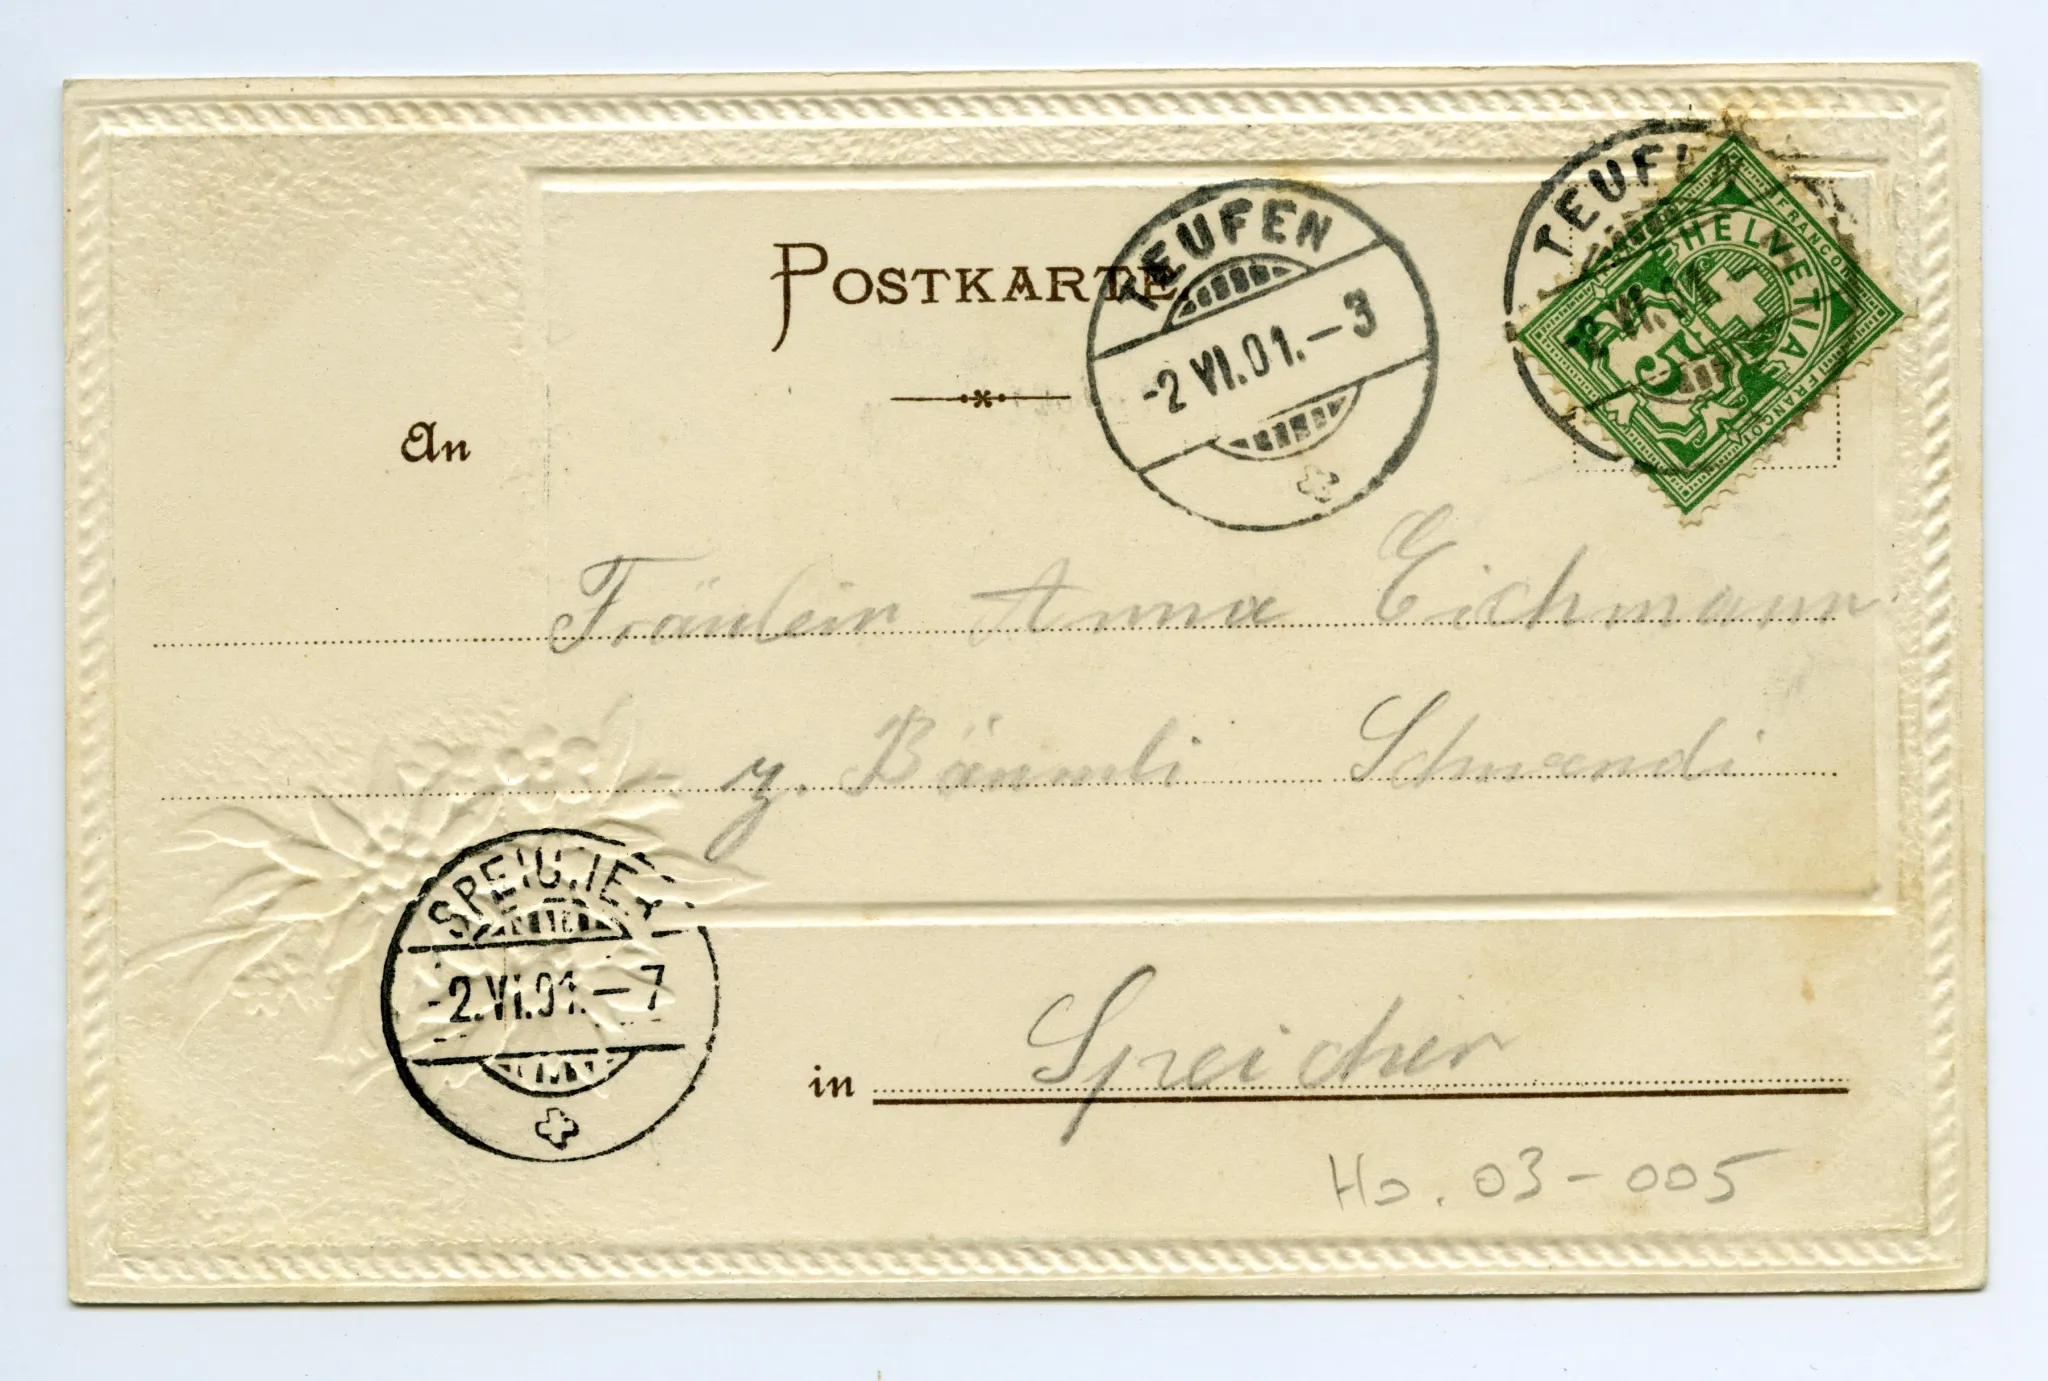 POSTKARTE
TEUFEN
-2 VI.01.-3
TEUFEN
HELVETIA
FRANCO
FRANCO
5
An
Fräulein Anna Eichmann.
z. Bäumli Schwendi
SPEICHER
-2.VI.01.-7
in Speicher
Ho. 03-005